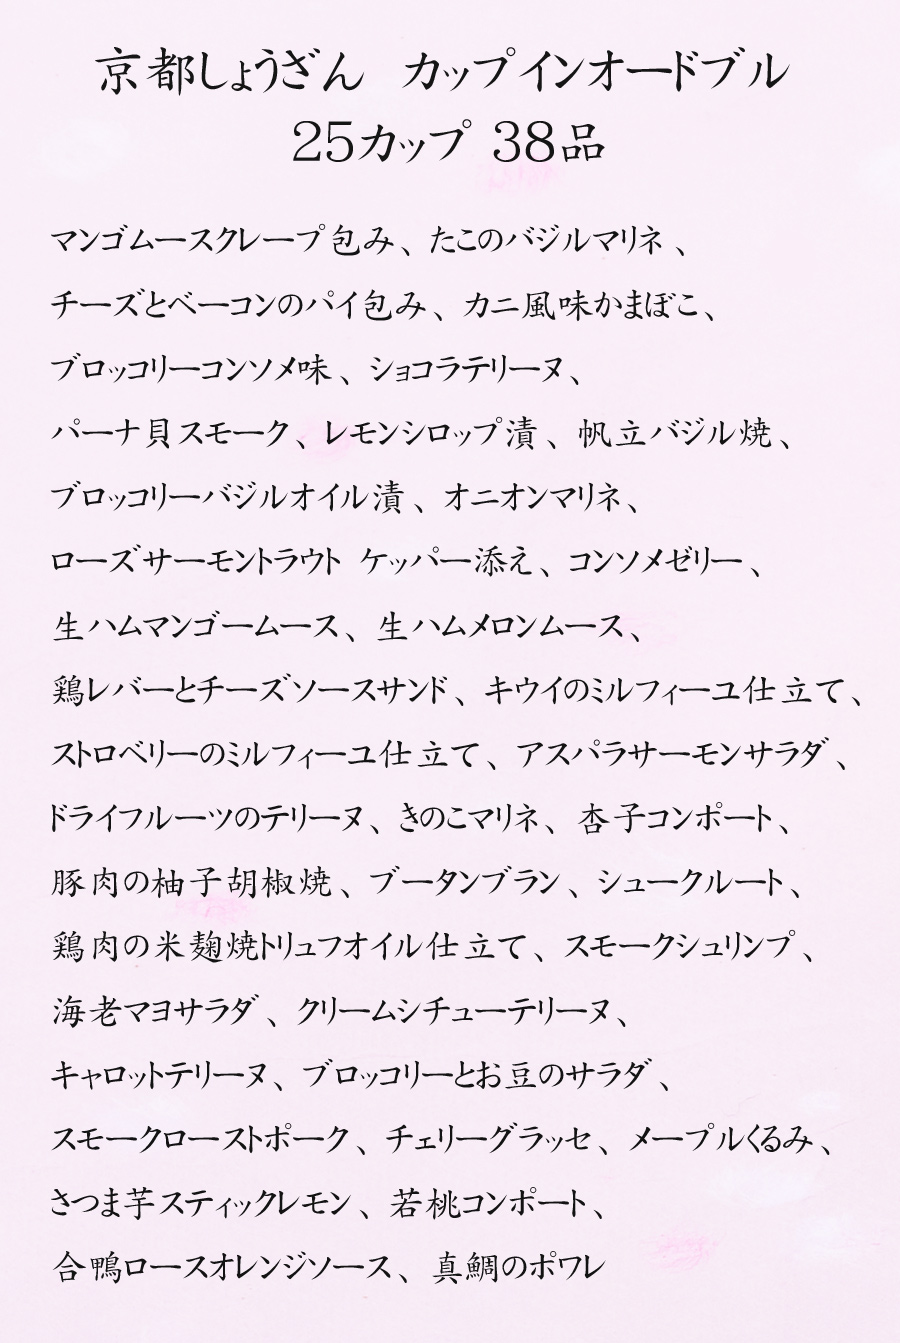 京都しょうざん カップインオードブル
25カップ 38品
マンゴムースクレープ包み、たこのバジルマリネ、
チーズとベーコンのパイ包み、カニ風味かまぼこ、
ブロッコリーコンソメ味、ショコラテリーヌ、
パーナ貝スモーク、レモンシロップ漬、帆立バジル焼、
ブロッコリーバジルオイル漬、オニオンマリネ、
ローズサーモントラウト ケッパー添え、コンソメゼリー、
生ハムマンゴームース、生ハムメロンムース、
鶏レバーとチーズソースサンド、キウイのミルフィーユ仕立て、
ストロベリーのミルフィーユ仕立て、アスパラサーモンサラダ、
ドライフルーツのテリーヌ、きのこマリネ、杏子コンポート、
豚肉の柚子胡椒焼、ブータンブラン、シュークルート、
鶏肉の米麹焼トリュフオイル仕立て、スモークシュリンプ、
海老マヨサラダ、クリームシチューテリーヌ、
キャロットテリーヌ、ブロッコリーとお豆のサラダ、
スモークローストポーク、チェリーグラッセ、メープルくるみ、
さつま芋スティックレモン、若桃コンポート、
合鴨ロースオレンジソース、真鯛のポワレ